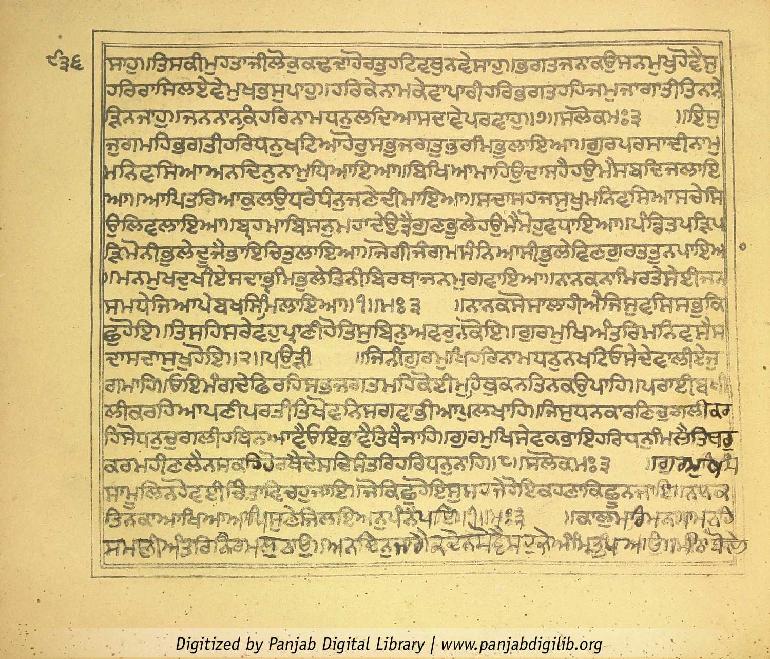 ੯੩੬
ਸਾਹੁ॥ਤਿਸਕੀਮੁਹਤਾਜੀਲੋਕੁਕਢਦਾਹੋਰਤੁਹਟਿਨਵਥੁਨਵੇਸਾਹੁ॥ਭਗਤਜਨਾਕਉਸਨਮੁਖੁਹੋਵੈਸੁ
ਹਰਿਰਾਸਿਲਏਵੇਮੁਖਭਸੁਪਾਹੁ॥ਹਰਿਕੇਨਾਮਕੇਵਾਪਾਰੀਹਰਿਭਗਤਹਹਿਜਮੁਜਾਗਾਤੀਤਿਨਾਨੇ
ੜਿਨਜਾਹੁ॥ਜਨਨਾਨਕਿਹਰਿਨਾਮਧਨੁਲਦਿਆਸਦਾਵੇਪਰਵਾਹੁ॥੭॥ਸਲੋਕਮਃ੩ ॥ਇਸੁ
ਜੁਗਮਹਿਭਗਤੀਹਰਿਧਨੁਖਟਿਆਹੋਰੁਸਭੁਜਗਤੁਭਰਮਿਭੁਲਾਇਆ॥ਗੁਰਪਰਸਾਦੀਨਾਮੁ
ਮਨਿਵਸਿਆਅਨਦਿਨੁਨਾਮੁਧਿਆਇਆ॥ਬਿਖਿਆਮਾਹਿਉਦਾਸਹੈਹਉਮੈਸਬਦਿਜਲਾਇ
ਆ॥ਆਪਿਤਰਿਆਕੁਲਉਧਰੇਧੰਨੁਜਣੇਦੀਮਾਇਆ॥ਸਦਾਸਹਜੁਸੁਖੁਮਨਿਵਸਿਆਸਚੇਸਿ
ਉਲਿਵਲਾਇਆ॥ਬ੍ਰਹਮਾਬਿਸਨੁਮਹਾਦੇਉਤ੍ਰੈਗੁਣਭੁਲੇਹਉਮੈਮੋਹੁਵਧਾਇਆ॥ਪੰਡਿਤਪੜਿਪ
ੜਿਮੋਨੀਭੁਲੇਦੂਜੈਭਾਇਚਿਤੁਲਾਇਆ॥ਜੋਗੀਜੰਗਮਸੰਨਿਆਸੀਭੁਲੇਵਿਣੁਗੁਰਤਤੁਨਪਾਇਆ
॥ਮਨਮੁਖਦੁਖੀਏਸਦਾਭ੍ਰਮਿਭੁਲੇਤਿਨੀਬਿਰਥਾਜਨਮੁਗਵਾਇਆ॥ਨਾਨਕਨਾਮਿਰਤੇਸੇਈਜਨ
ਸਮਧੇਜਿਆਪੇਬਖਸਿਮਿਲਾਇਆ॥੧॥ਮਃ੩ ॥ਨਾਨਕਸੋਸਾਲਾਹੀਐਜਿਸੁਵਸਿਸਭੁਕਿ
ਛੁਹੋਇ॥ਤਿਸਹਿਸਰੇਵਹੁਪ੍ਰਾਣੀਹੋਤਿਸੁਬਿਨੁਅਵਰੁਨਕੋਇ॥ਗੁਰਮੁਖਿਅੰਤਰਿਮਨਿਵਸੈਸ
ਦਾਸਦਾਸੁਖੁਹੋਇ॥੨॥ਪਉੜੀ ॥ਜਿਨੀਗੁਰਮੁਖਿਹਰਿਨਾਮਧਨੁਨਖਟਿਓਸੇਦੇਵਾਲੀਏਜੁ
ਗਮਾਹਿ॥ਓਇਮੰਗਦੇਫਿਰਹਿਸਭਜਗਤਮਹਿਕੋਈਮੁਹਿਥੁਕਨਤਿਨਕਉਪਾਹਿ॥ਪਰਾਈਬਖੀ
ਲੀਕਰਹਿਆਪਣੀਪਰਤੀਤਿਖੋਵਨਿਸਗਵਾਭੀਆਪੁਲਖਾਹਿ॥ਜਿਸੁਧਨਕਾਰਣਿਚੁਗਲੀਕਰ
ਹਿਸੋਧਨੁਚੁਗਲੀਹਥਿਨਆਵੈਓਇਭਾਵੈਤਿਥੈਜਾਹਿ॥ਗੁਰਮੁਖਿਸੇਵਕਭਾਇਹਰਿਧਨੁਮਿਲੈਤਿਥਹੁ
ਕਰਮਹੀਣਲੈਨਸਕਹਿਹੋਰਥੈਦੇਸਦਿਸੰਤਰਿਹਰਿਧਨੁਨਾਹਿ॥੮॥ਸਲੋਕਮਃ੩ ॥ਗੁਰਮੁਖਿਸੰ
ਸਾਮੂਲਿਨਹੋਵਈਚਿੰਤਾਵਿਚਹੁਜਾਇ॥ਜੋਕਿਛੁਹੋਇਸੁਸਹਜੇਹੋਇਕਹਣਾਕਿਛੂਨਜਾਇ॥ਨਾਨਕ
ਤਿਨਕਾਆਖਿਆਆਪਿਸੁਣੇਜਿਲਇਅਨੁਪੰਨੈਪਾਇ॥੧॥ਮਃ੩ ॥ਕਾਲੁਮਾਰਿਮਨਸਾਮਨਹਿ
ਸਮਾਣੀਅੰਤਰਿਨਿਰਮਲੁਨਾਉ॥ਅਨਦਿਨੁਜਾਗੈਕਦੇਨਸੋਵੈਸਹਜੇਅੰਮ੍ਰਿਤੁਪਿਆਉ॥ਮੀਠਾਬੋਲੇ
Digitized by Panjab Digital Library | www.panjabdigilib.org